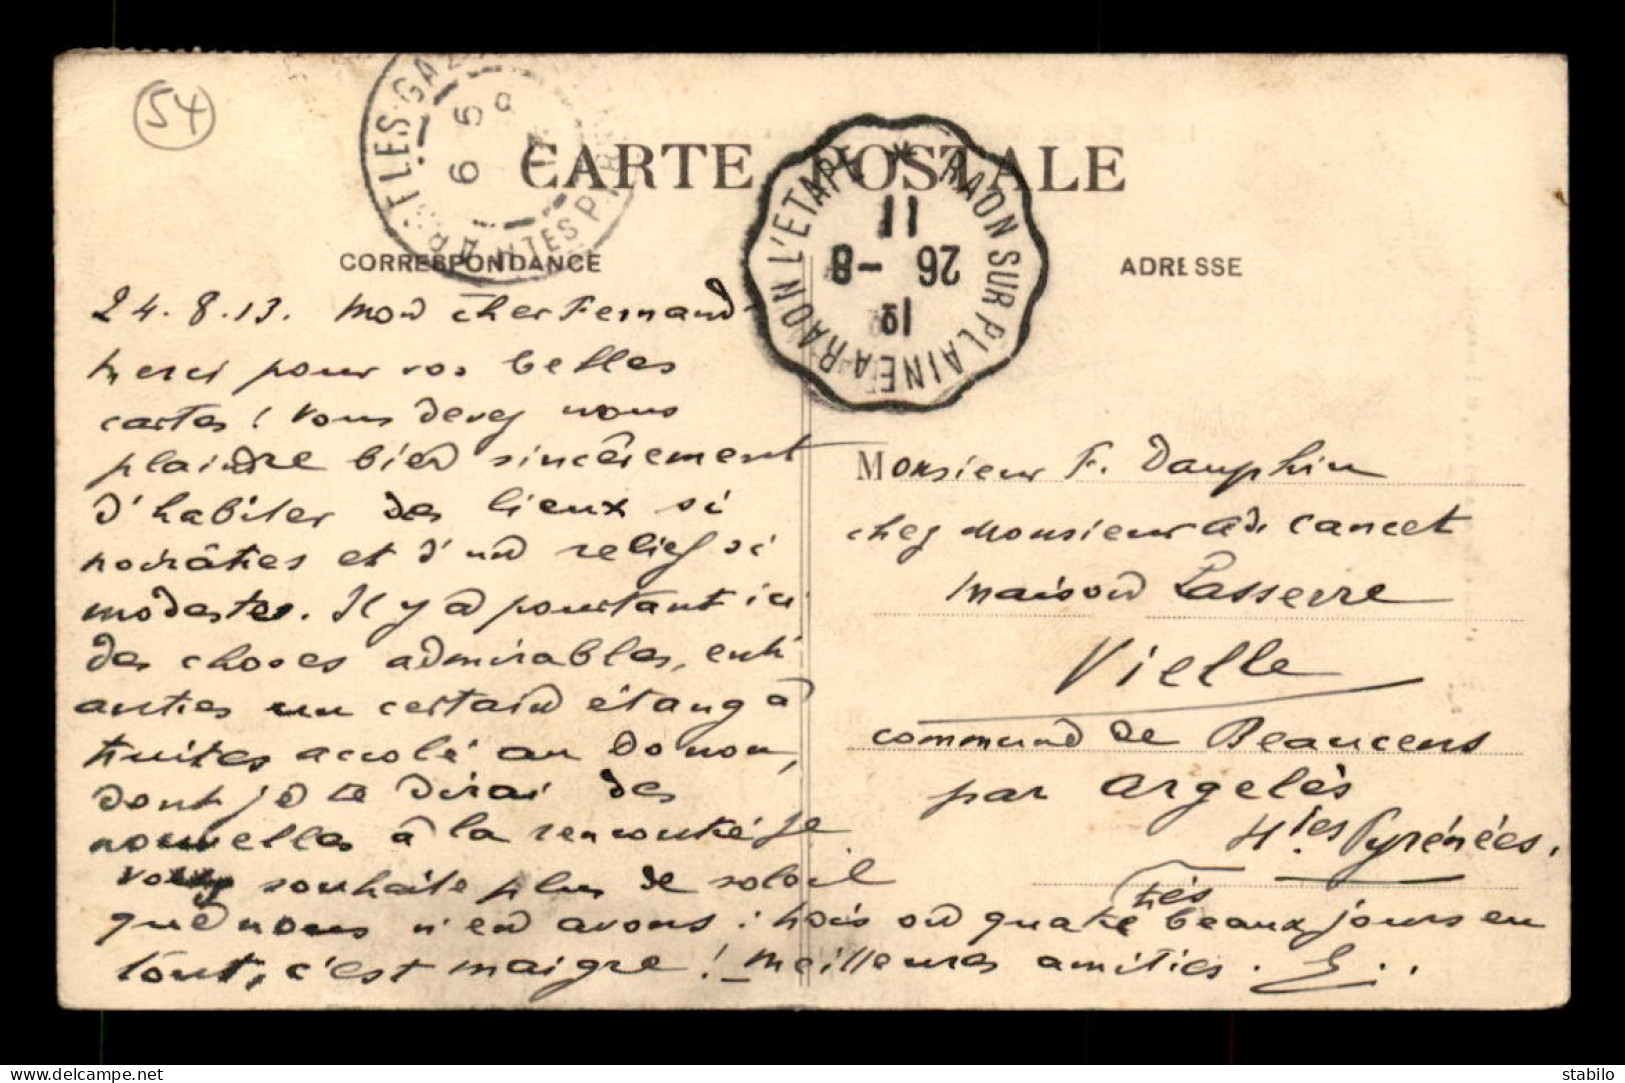 54
CARTE POSTALE
CORRESPONDANCE
ADRESSE
RAON L'ETAPE * RAON SUR PLAINE A
11
26 -8
24.8.13. Mon cher Fernand
Merci pour vos belles
cartes! Vous devez nous
plaindre bien sincèrement
d'habiter des lieux si
noirâtres et d'un relief si
modeste. Il y a pourtant ici
des choses admirables, entr
autres un certain étang à
truites accolé au Donon,
dont je te dirai des
nouvelles à la rentrée. Je
vous souhaite plus de soleil
que nous n'en avons : trois ou quatre très beaux jours en
tout, c'est maigre! — Meilleures amitiés.
Monsieur F. Dauphin
chez Monsieur Ad. Cancet
maison Lasserre
Vielle
commune de Beaucens
par Argelès
Htes Pyrénées.
www.delcampe.net
stabilo